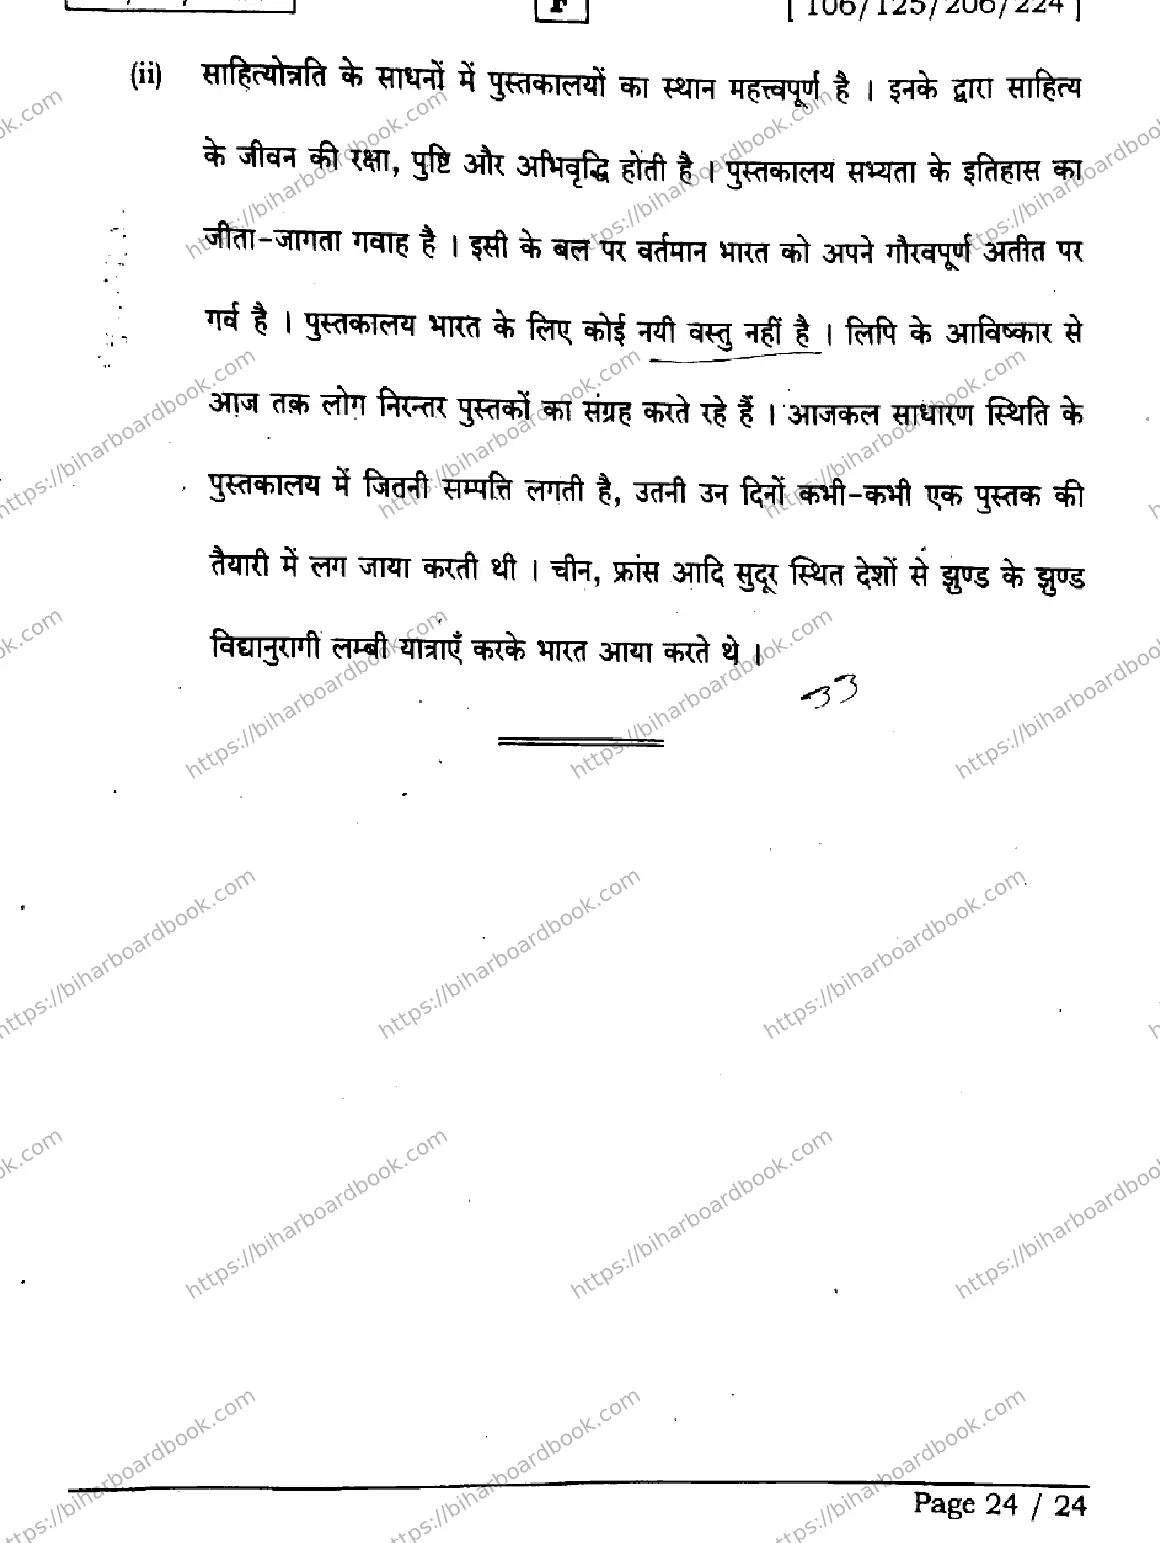 F
[ 106/125/206/224 ]
(ii) साहित्योन्नति के साधनों में पुस्तकालयों का स्थान महत्त्वपूर्ण है । इनके द्वारा साहित्य
के जीवन की रक्षा, पुष्टि और अभिवृद्धि होती है । पुस्तकालय सभ्यता के इतिहास का
जीता-जागता गवाह है । इसी के बल पर वर्तमान भारत को अपने गौरवपूर्ण अतीत पर
गर्व है । पुस्तकालय भारत के लिए कोई नयी वस्तु नहीं है । लिपि के आविष्कार से
आज तक लोग निरन्तर पुस्तकों का संग्रह करते रहे हैं । आजकल साधारण स्थिति के
पुस्तकालय में जितनी सम्पत्ति लगती है, उतनी उन दिनों कभी-कभी एक पुस्तक की
तैयारी में लग जाया करती थी । चीन, फ्रांस आदि सुदूर स्थित देशों से झुण्ड के झुण्ड
विद्यानुरागी लम्बी यात्राएँ करके भारत आया करते थे ।
33
https://biharboardbook.com
Page 24 / 24